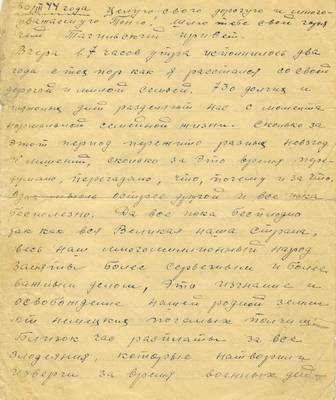 44 года Целую свою дорогую и много
уважаемую Шлю тебе свой
Тагильский привет.
Вчера в 7 часов утра исполнилось два
года с тех пор как я расстался со своей
дорогой и милой семьей, 730 долгих и
дней разделяют нас с момента
нормальной семейной жизни. Сколько за
этот период пережито разных невзгод
и лишений, сколько за это время пере-
думано, перегадано, что, почему и за что.
острее другой и все пока
бесполезно. Да все пока бесплодно
так как вся Великая наша Страна,
весь наш многомиллионный народ
заняты более серьезным и более
важным делом, это изгнание и
освобождение нашей родной земли
от немецких поганых полчищ.
Близок час расплаты за все
злодеяния, которые натворили
изверги за время военных дей-